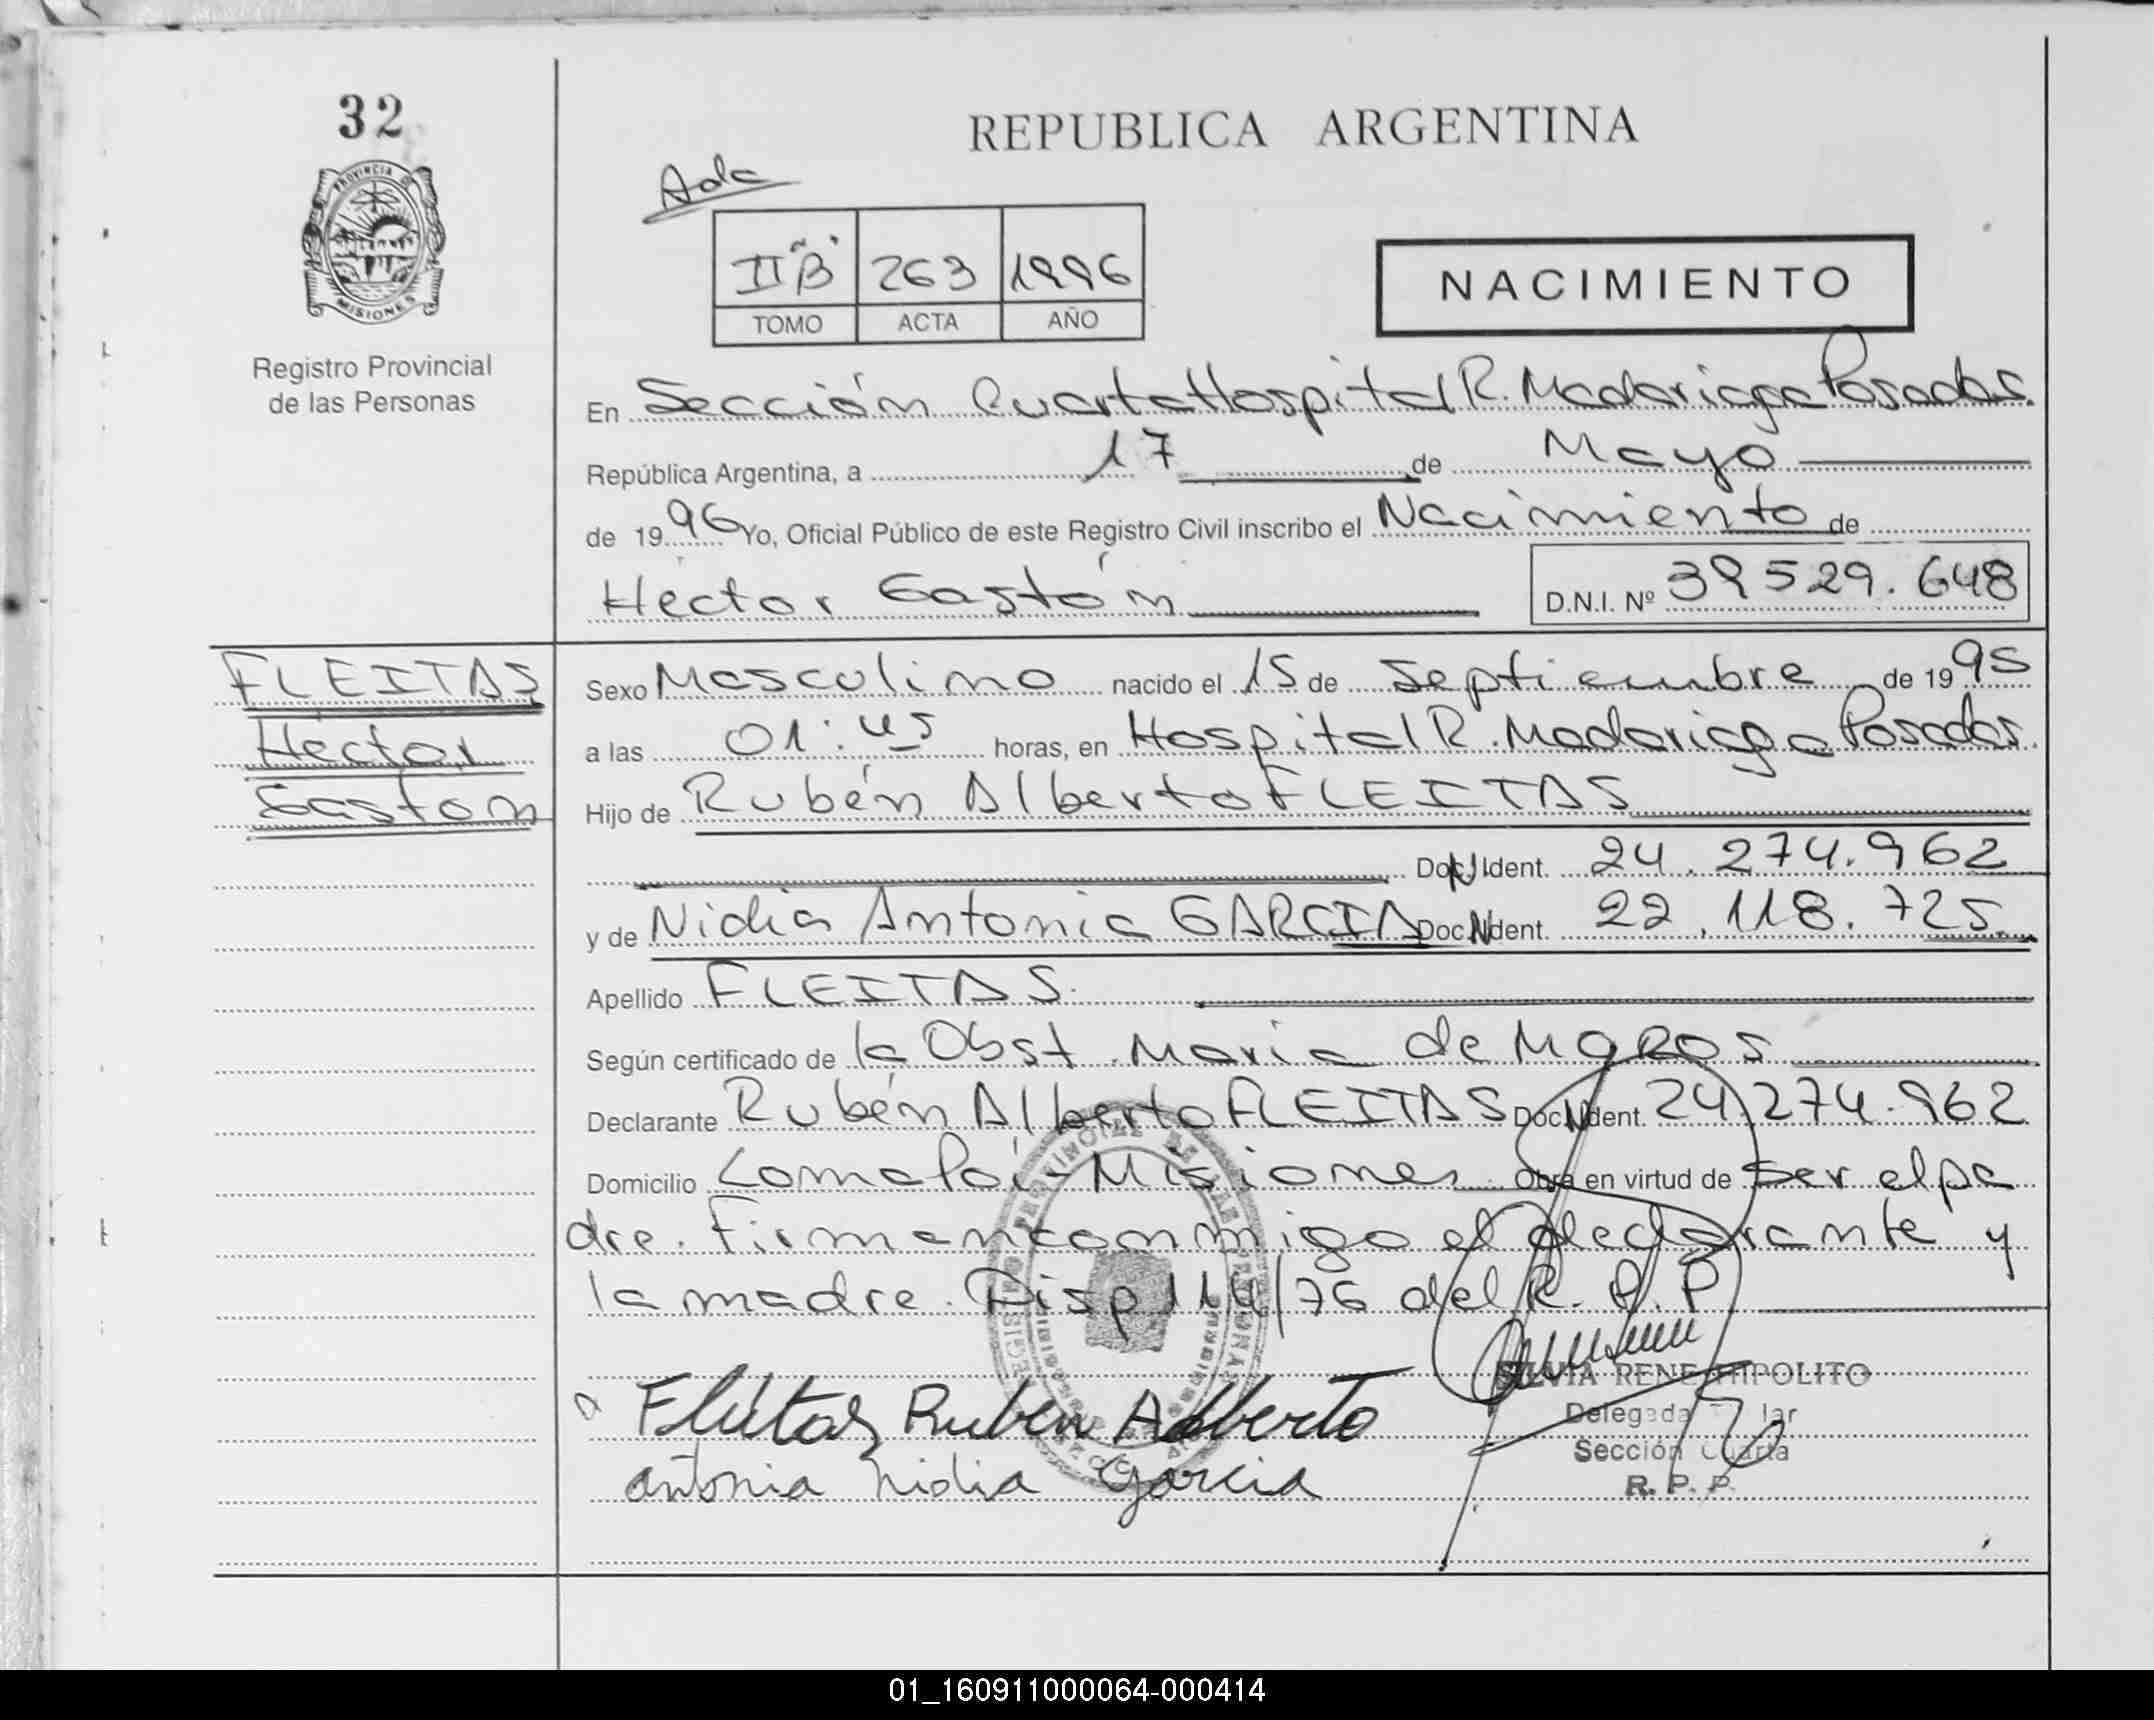 32
REPUBLICA ARGENTINA
PROVINCIA DE
MISIONES
Registro Provincial
de las Personas
IIB 263 1996
TOMO ACTA AÑO
NACIMIENTO
En Sección Cuarta Hospital R. Madariaga Posadas.
República Argentina, a 17 de Mayo
de 1996 Yo, Oficial Público de este Registro Civil inscribo el Nacimiento de
Héctor Gastón D.N.I. Nº 39529.648
FLEITAS
Héctor
Gastón
Sexo Masculino nacido el 15 de Septiembre de 1995
a las 01:45 horas, en Hospital R. Madariaga Posadas.
Hijo de Rubén Alberto FLEITAS
Doc. N Ident. 24.274.962
y de Nidia Antonia GARCIA Doc. N Ident. 22.118.725.
Apellido FLEITAS.
Según certificado de la Obst. Maria de
Declarante Rubén Alberto FLEITAS Doc. N Ident. 24.274.962
Domicilio Loma Poi - Misiones Obra en virtud de ser el pa
dre. Firman conmigo el declarante y
la madre. Disp 114/76 del R. P. P.
SILVIA RENE HIPOLITO
Fleitas Ruben Alberto
Delegada
Sección Cuarta
antonia nidia Garcia
R. P. P.
01_160911000064-000414